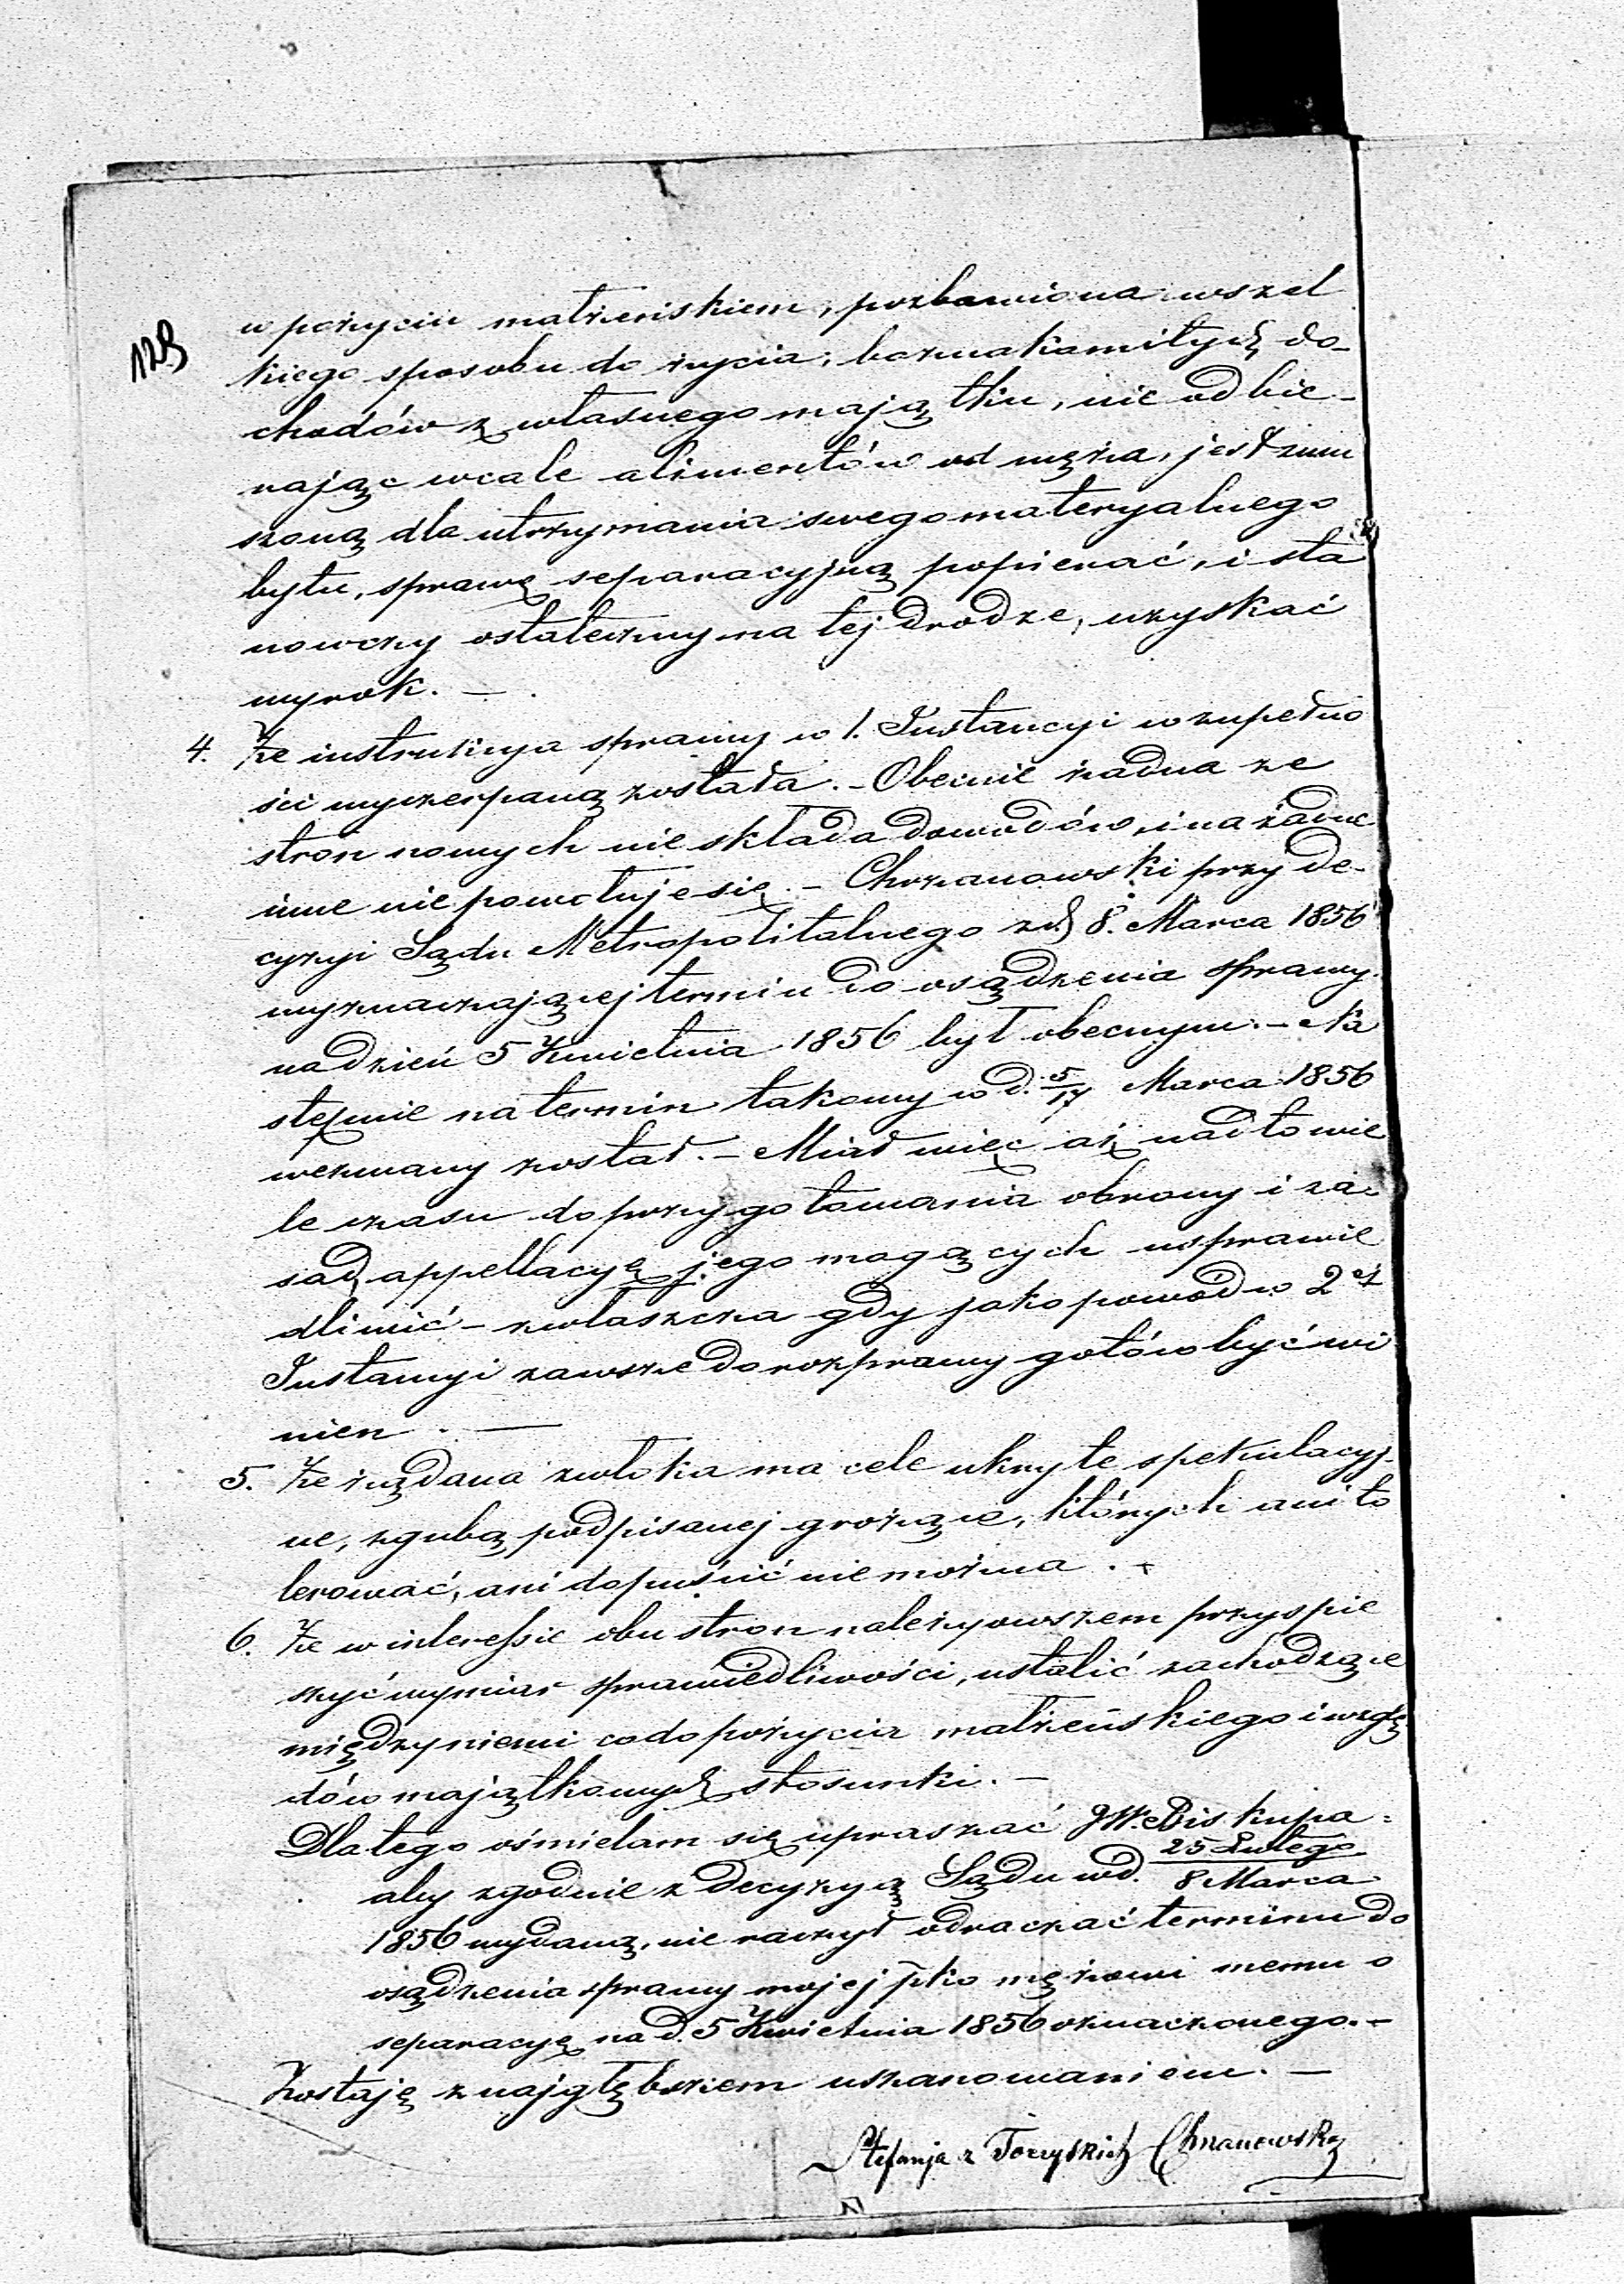 128
w pożyciu małżeńskiem, pozbawiona wszel
kiego sposobu do życia, bo znakomitych do-
chodów z własnego majątku, nie odbie-
rając wcale alimentów od męża, jest zmu
szoną dla utrzymania swego materyalnego
bytu, sprawę separacyjną popierać, i sta
nowczy ostateczny na tej drodze, uzyskać
wyrok. —
4. Że instrukcya sprawy w 1. Instancyi w zupełno
ści wyczerpaną została. – Obecnie żadna ze
stron nowych nie składa dowodów, i na żadne
inne nie powołuje się. – Chrzanowski przy de-
cyzyi Sądu Metropolitalnego z d. 8. Marca 1856
wyznaczającej termin do osądzenia sprawy
na dzień 5 Kwietnia 1856 był obecnym. – Na
stępnie na termin takowy w d. 5/17 Marca 1856
wezwany został. – Miał więc aż nadto wie
le czasu do przygotowania obrony i za-
sad, appellacyę jego mogących usprawie
dliwić – zwłaszcza gdy jako powód w 2ej
Instancyi zawsze do rozprawy gotów być wi
nien. —
5. Że żądana zwłoka ma cele ukryte spekulacyj-
ne, zgubą podpisanej grożące, których ani to
lerować, ani dopuścić nie można. –
6. Że w interessie obu stron należy owszem przyspie
szyć wymiar sprawiedliwości, ustalić zachodzące
między niemi co do pożycia małżeńskiego i wzglę
dów majątkowych stosunki. –
Dlatego ośmielam się upraszać JW. Biskupa
aby zgodnie z decyzyą Sądu w d. 25 Lutego/8 Marca
1856 wydaną, nie raczył odraczać terminu do
osądzenia sprawy mojej pko mężowi memu o
separacyę na d. 5 Kwietnia 1856 oznaczonego. –
Zostaję z najgłębszem uszanowaniem. —
Stefanja z Chrzanowska